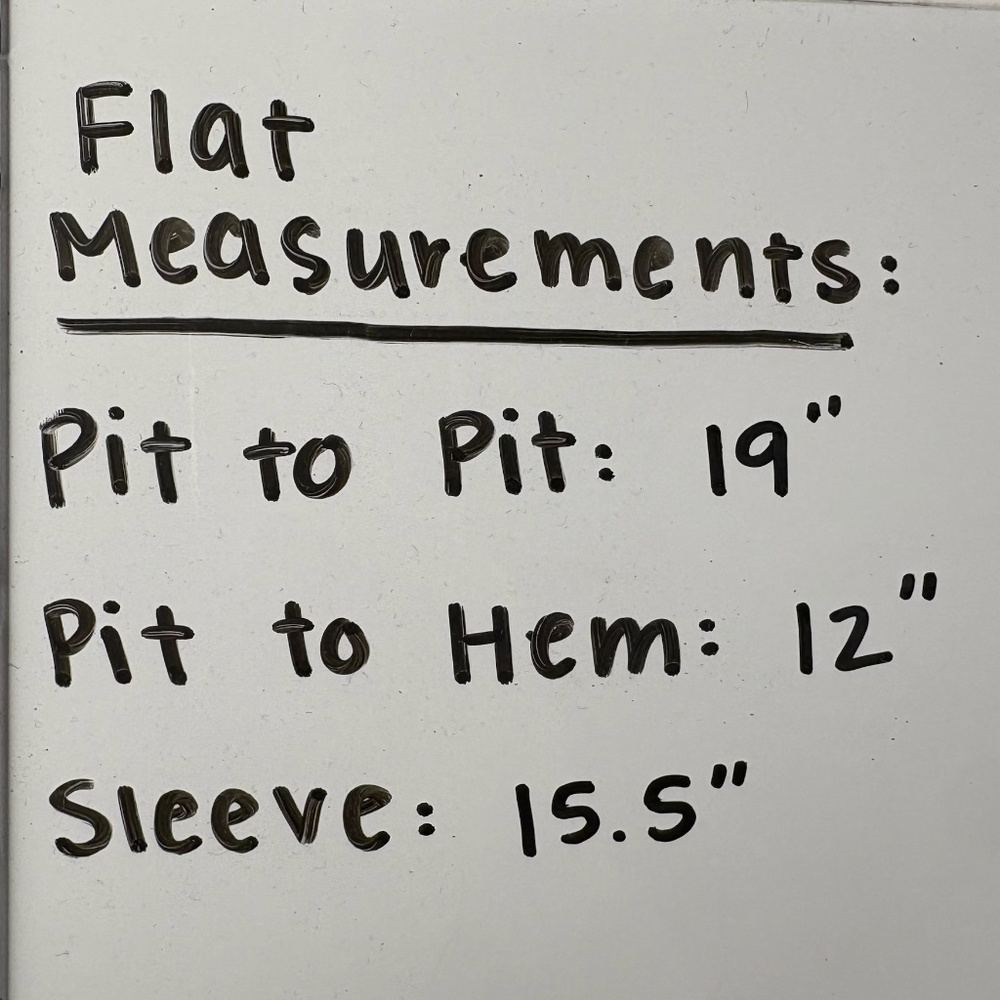 Flat
Measurements:
Pit to Pit: 19"
Pit to Hem: 12"
Sleeve: 15.5"